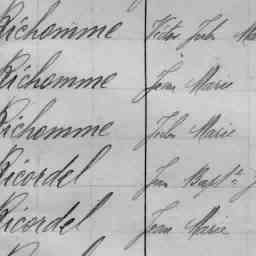 Richomme Victor Jules Ma
Richomme Jean Marie
Richomme Jules Marie
Ricordel Jean Bapt.te J
Ricordel Jean Marie